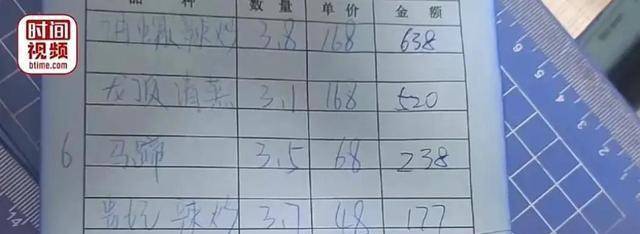 时间
视频
btime.com
品 种 数量 单价 金额
辣炒 3.8 168 638
清蒸 3.1 168 520
6 马蹄 3.5 68 238
贵妃 辣炒 3.7 48 177